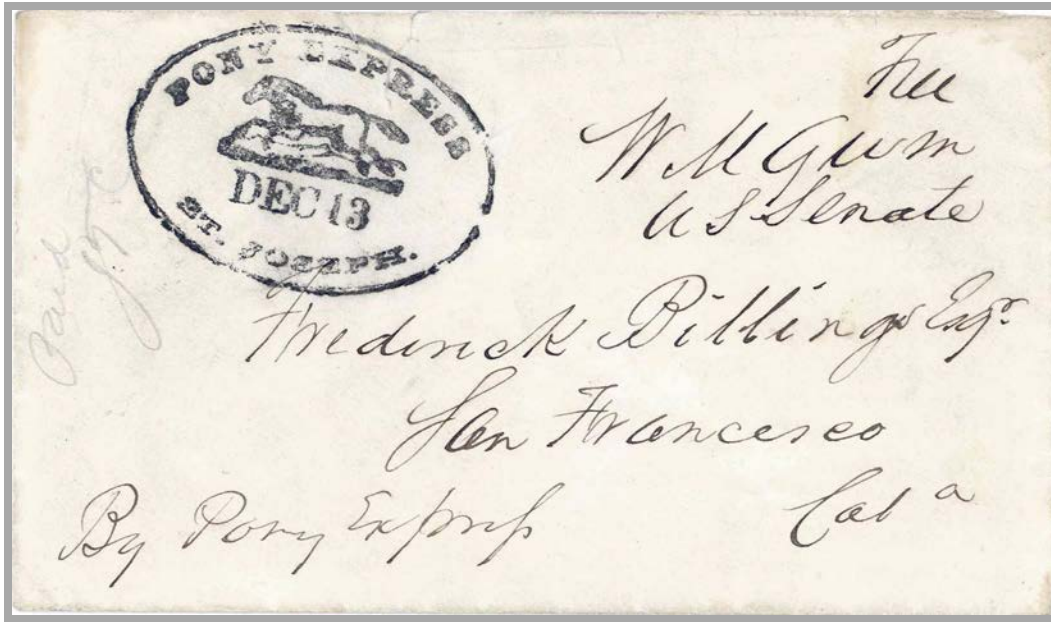 PONY EXPRESS
DEC 13
ST. JOSEPH.
Free
W M Gwin
US Senate
Paid
Frederick Billings Esqr.
San Francisco
By Pony Express
Cala